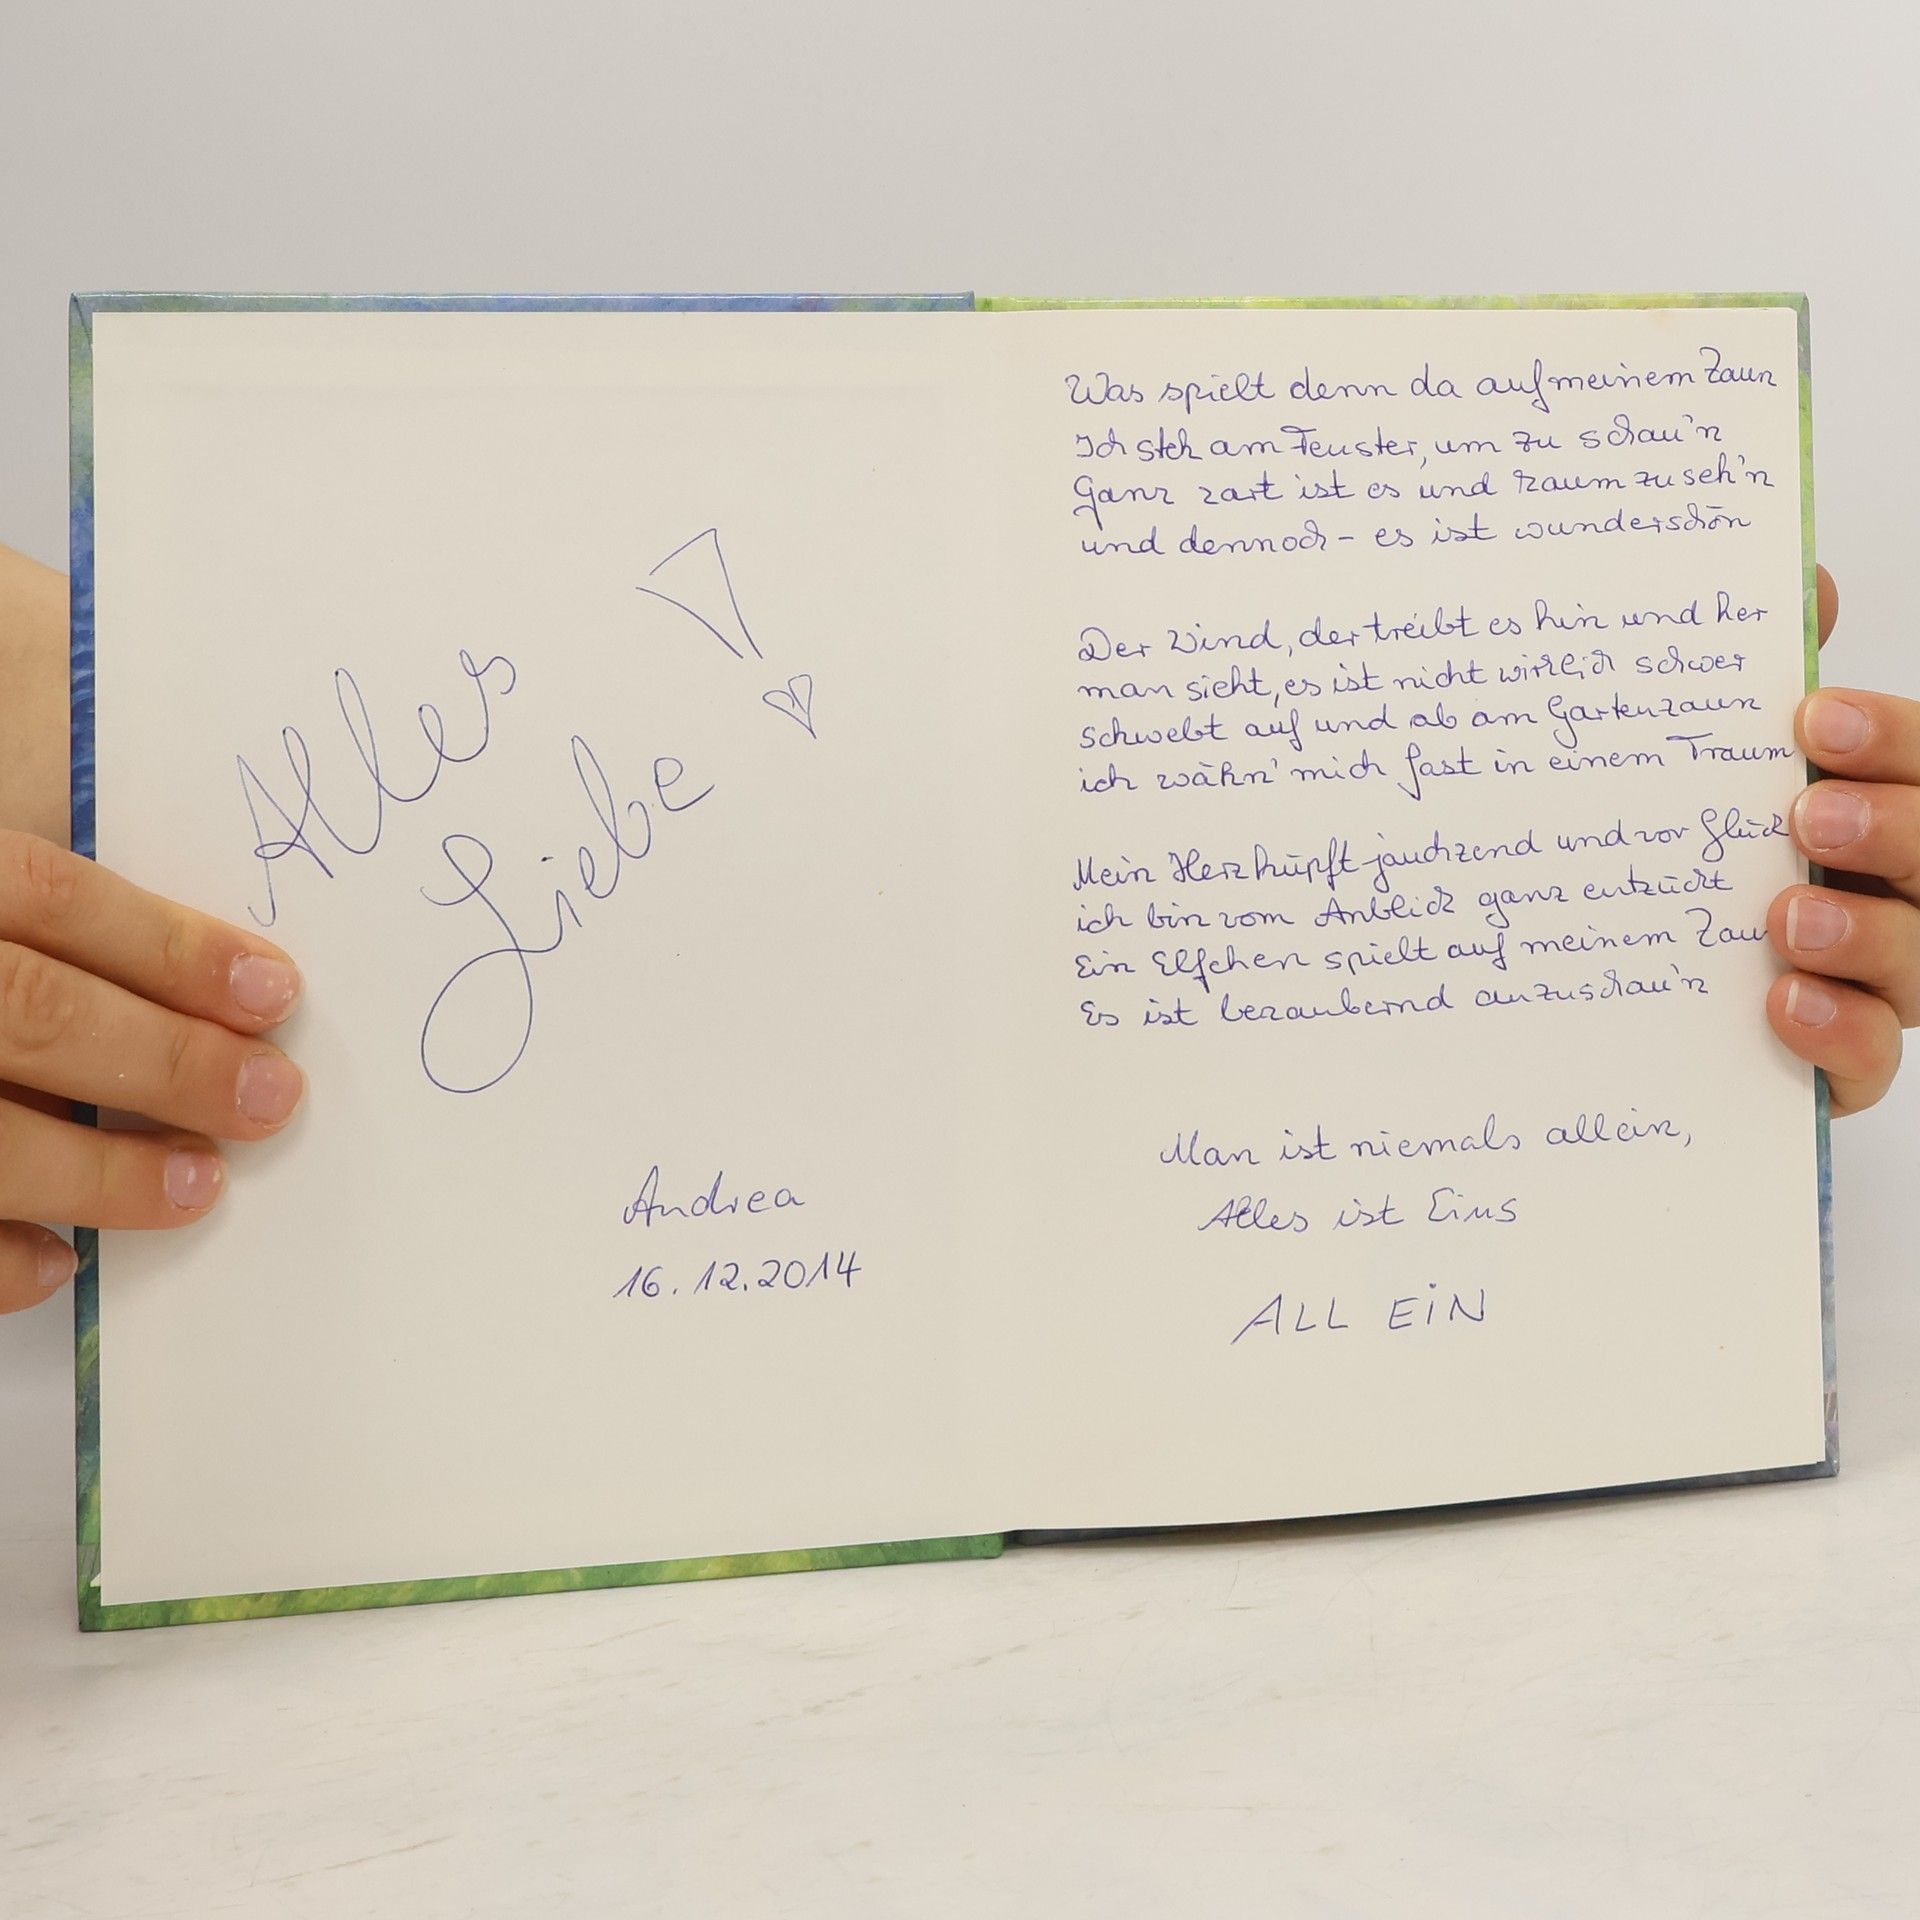 Alles
Liebe!
Andrea
16.12.2014
Was spielt denn da auf meinem Zaun
Ich steh am Fenster, um zu schau'n
Ganz zart ist es und kaum zu seh'n
und dennoch - es ist wunderschön
Der Wind, der treibt es hin und her
man sieht, es ist nicht wirklich schwer
schwebt auf und ab am Gartenzaun
ich wähn' mich fast in einem Traum
Mein Herz hüpft jauchzend und vor Glück
ich bin vom Anblick ganz entzückt
Ein Elfchen spielt auf meinem Zau
Es ist bezaubernd anzuschau'n
Man ist niemals allein,
Alles ist Eins
ALL EiN